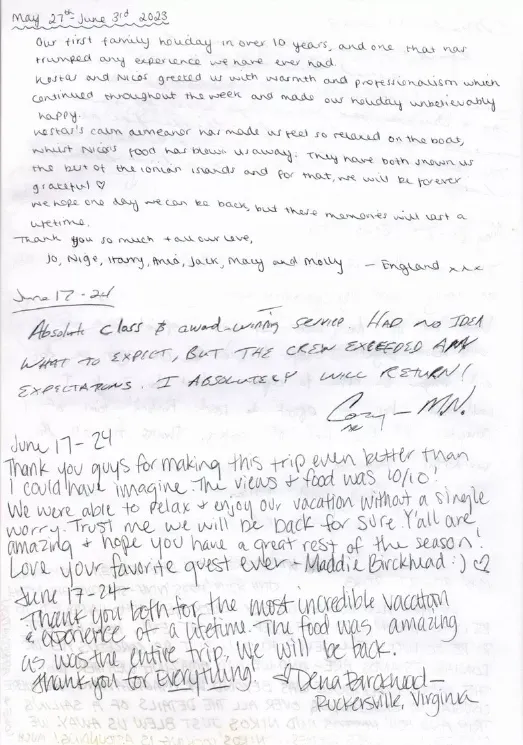 May 27th - June 3rd 2023
Our first family holiday in over 10 years, and one that has
trumped any experience we have ever had.
Kostas and Nicos greeted us with warmth and professionalism which
continued throughout the week and made our holiday unbelievably
happy.
Kostas's calm demeanor has made us feel so relaxed on the boat,
whilst Nico's food has blown us away. They have both shown us
the best of the ionian islands and for that, we will be forever
grateful ♡
We hope one day we can be back, but these memories will last a
lifetime.
Thank you so much + all our love,
Jo, Nige, Harry, Jack, Macy and Molly - England xxx
June 17-24
Absolute class & award-winning service. HAD NO IDEA
WHAT TO EXPECT, BUT THE CREW EXCEEDED ANY
EXPECTATIONS. I ABSOLUTELY WILL RETURN!
- M.N.
June 17-24
Thank you guys for making this trip even better than
I could have imagine. The views + food was 10/10!
We were able to relax + enjoy our vacation without a single
worry. Trust me we will be back for sure. Y'all are
amazing + hope you have a great rest of the season!
Love your favorite guest ever - Maddie Birckhead :) ♡
June 17-24-
Thank you both for the most incredible vacation
& experience of a lifetime. The food was amazing
as was the entire trip, we will be back.
Thank you for Everything! ♡ Dena Birckhead -
Ruckersville, Virginia